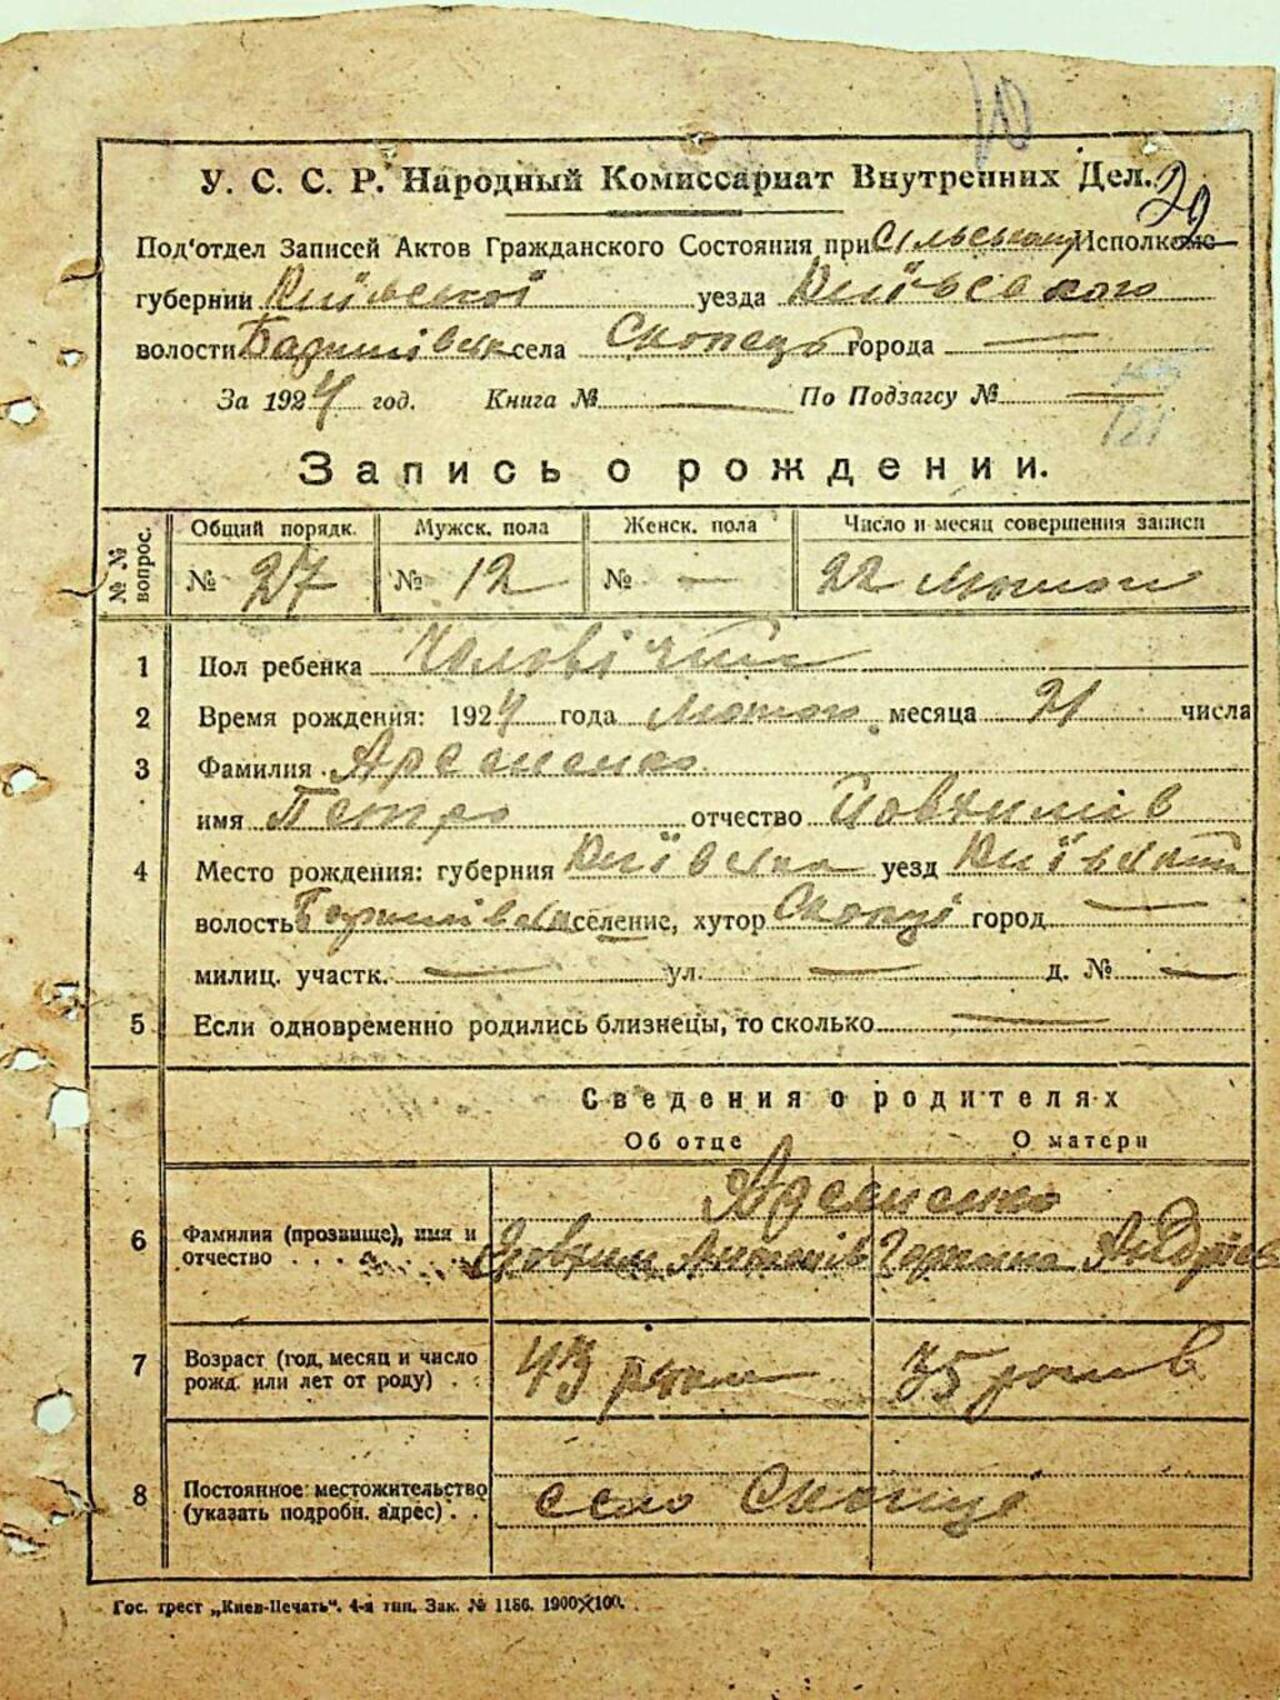 У. С. С. Р. Народный Комиссариат Внутренних Дел.
Под'отдел Записей Актов Гражданского Состояния при Сільському Исполкоме
губернии Київської уезда Київського
волости села Скопець города —
За 1924 год. Книга № — По Подзагсу № —
Запись о рождении.
№ № вопрос. Общий порядк. Мужск. пола Женск. пола Число и месяц совершения записи
№ 27 № 12 № — 22 Лютого
1 Пол ребенка Чоловічий
2 Время рождения: 1924 года Лютого месяца 21 числа
3 Фамилия
имя Петро отчество Йовхимів
4 Место рождения: губерния Київська уезд Київський
волость селение, хутор Скопці город —
милиц. участк. — ул. — д. № —
5 Если одновременно родились близнецы, то сколько —
Сведения о родителях
Об отце О матери
6 Фамилия (прозвище), имя и
отчество . . . Йовхим Антонів Андріїв
7 Возраст (год, месяц и число
рожд. или лет от роду) . . 43 роки 35 років
8 Постоянное местожительство
(указать подробн. адрес) . . село Скопці
Гос. трест „Киев-Печать“. 4-я тип. Зак. № 1186. 1900×100.